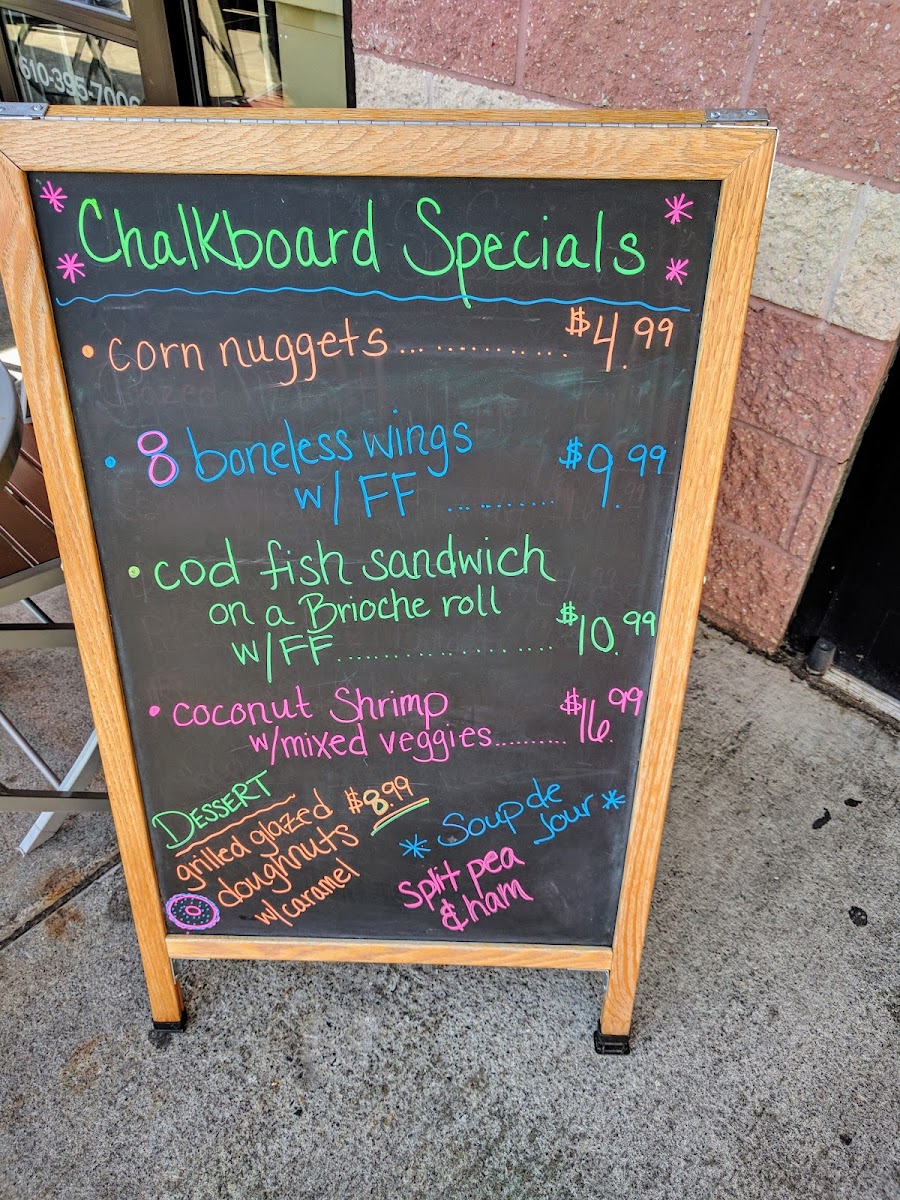 610-395-7000
Chalkboard Specials
• corn nuggets ............. $4.99
• 8 boneless wings
w/ FF .......... $9.99
• cod fish sandwich
on a Brioche roll
w/FF ..................... $10.99
• coconut Shrimp
w/mixed veggies.......... $16.99
DESSERT
grilled glazed $8.99
doughnuts
w/caramel
* Soup de
Jour *
split pea
& ham